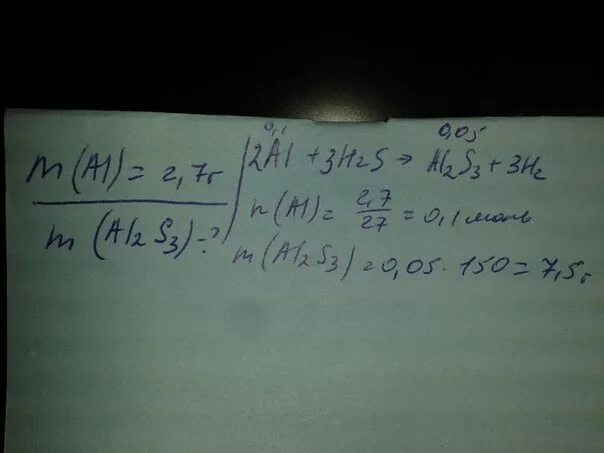 m(Al) = 2,7г
m(Al2S3) - ?
0,1 0,05
2Al + 3H2S → Al2S3 + 3H2
n(Al) = 2,7/27 = 0,1 моль
m(Al2S3) = 0,05 · 150 = 7,5г